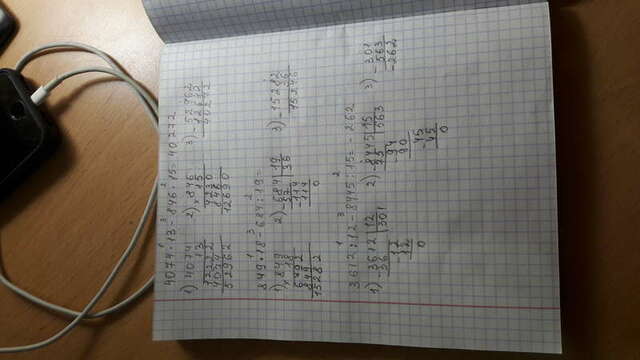 1 3 2
4074·13-846·15=40272
1) 4074 2) 846 3) -52962
13 × 15 12690
12222 4230 40272
4074 846
52962 12690
1 3 2
849·18-684:19=
1) 849 2) -684|19 3) -15282
× 18 57 36 36
6792 -114 15246
849 114
15282 0
1 3 2
3612:12-8445:15=-262
1) -3612|12 2) -8445|15 3) -301
36 301 75 563 563
12 -94 -262
12 90
0 -45
45
0